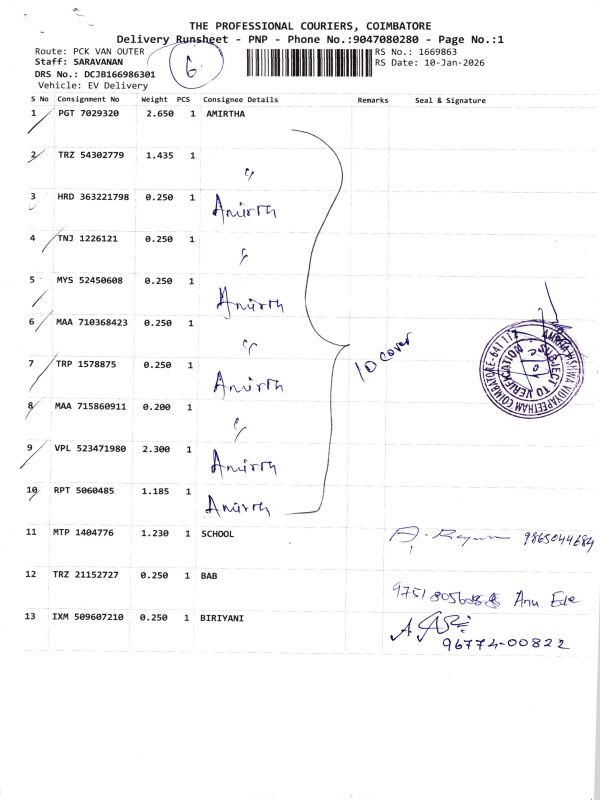 THE PROFESSIONAL COURIERS, COIMBATORE
Delivery Runsheet - PNP - Phone No.:9047080280 - Page No.:1
Route: PCK VAN OUTER
RS No.: 1669863
Staff: SARAVANAN
6
RS Date: 10-Jan-2026
DRS No.: DCJB166986301
Vehicle: EV Delivery
S No Consignment No Weight PCS Consignee Details Remarks Seal & Signature
1 PGT 7029320 2.650 1 AMIRTHA
2 TRZ 54302779 1.435 1 "
3 HRD 363221798 0.250 1 Amirth
4 TNJ 1226121 0.250 1 "
5 MYS 52450608 0.250 1 Amirth
6 MAA 710368423 0.250 1 "
10 cover
7 TRP 1578875 0.250 1 Amirth
8 MAA 715860911 0.200 1 "
9 VPL 523471980 2.300 1 Amirth
10 RPT 5060485 1.185 1 Amirth
AMRITA VISHWA VIDYAPEETHAM COIMBATORE-641 112
SUBJECT TO VERIFICATION
11 MTP 1404776 1.230 1 SCHOOL 9865044684
12 TRZ 21152727 0.250 1 BAB
13 IXM 509607210 0.250 1 BIRIYANI
96774-00822